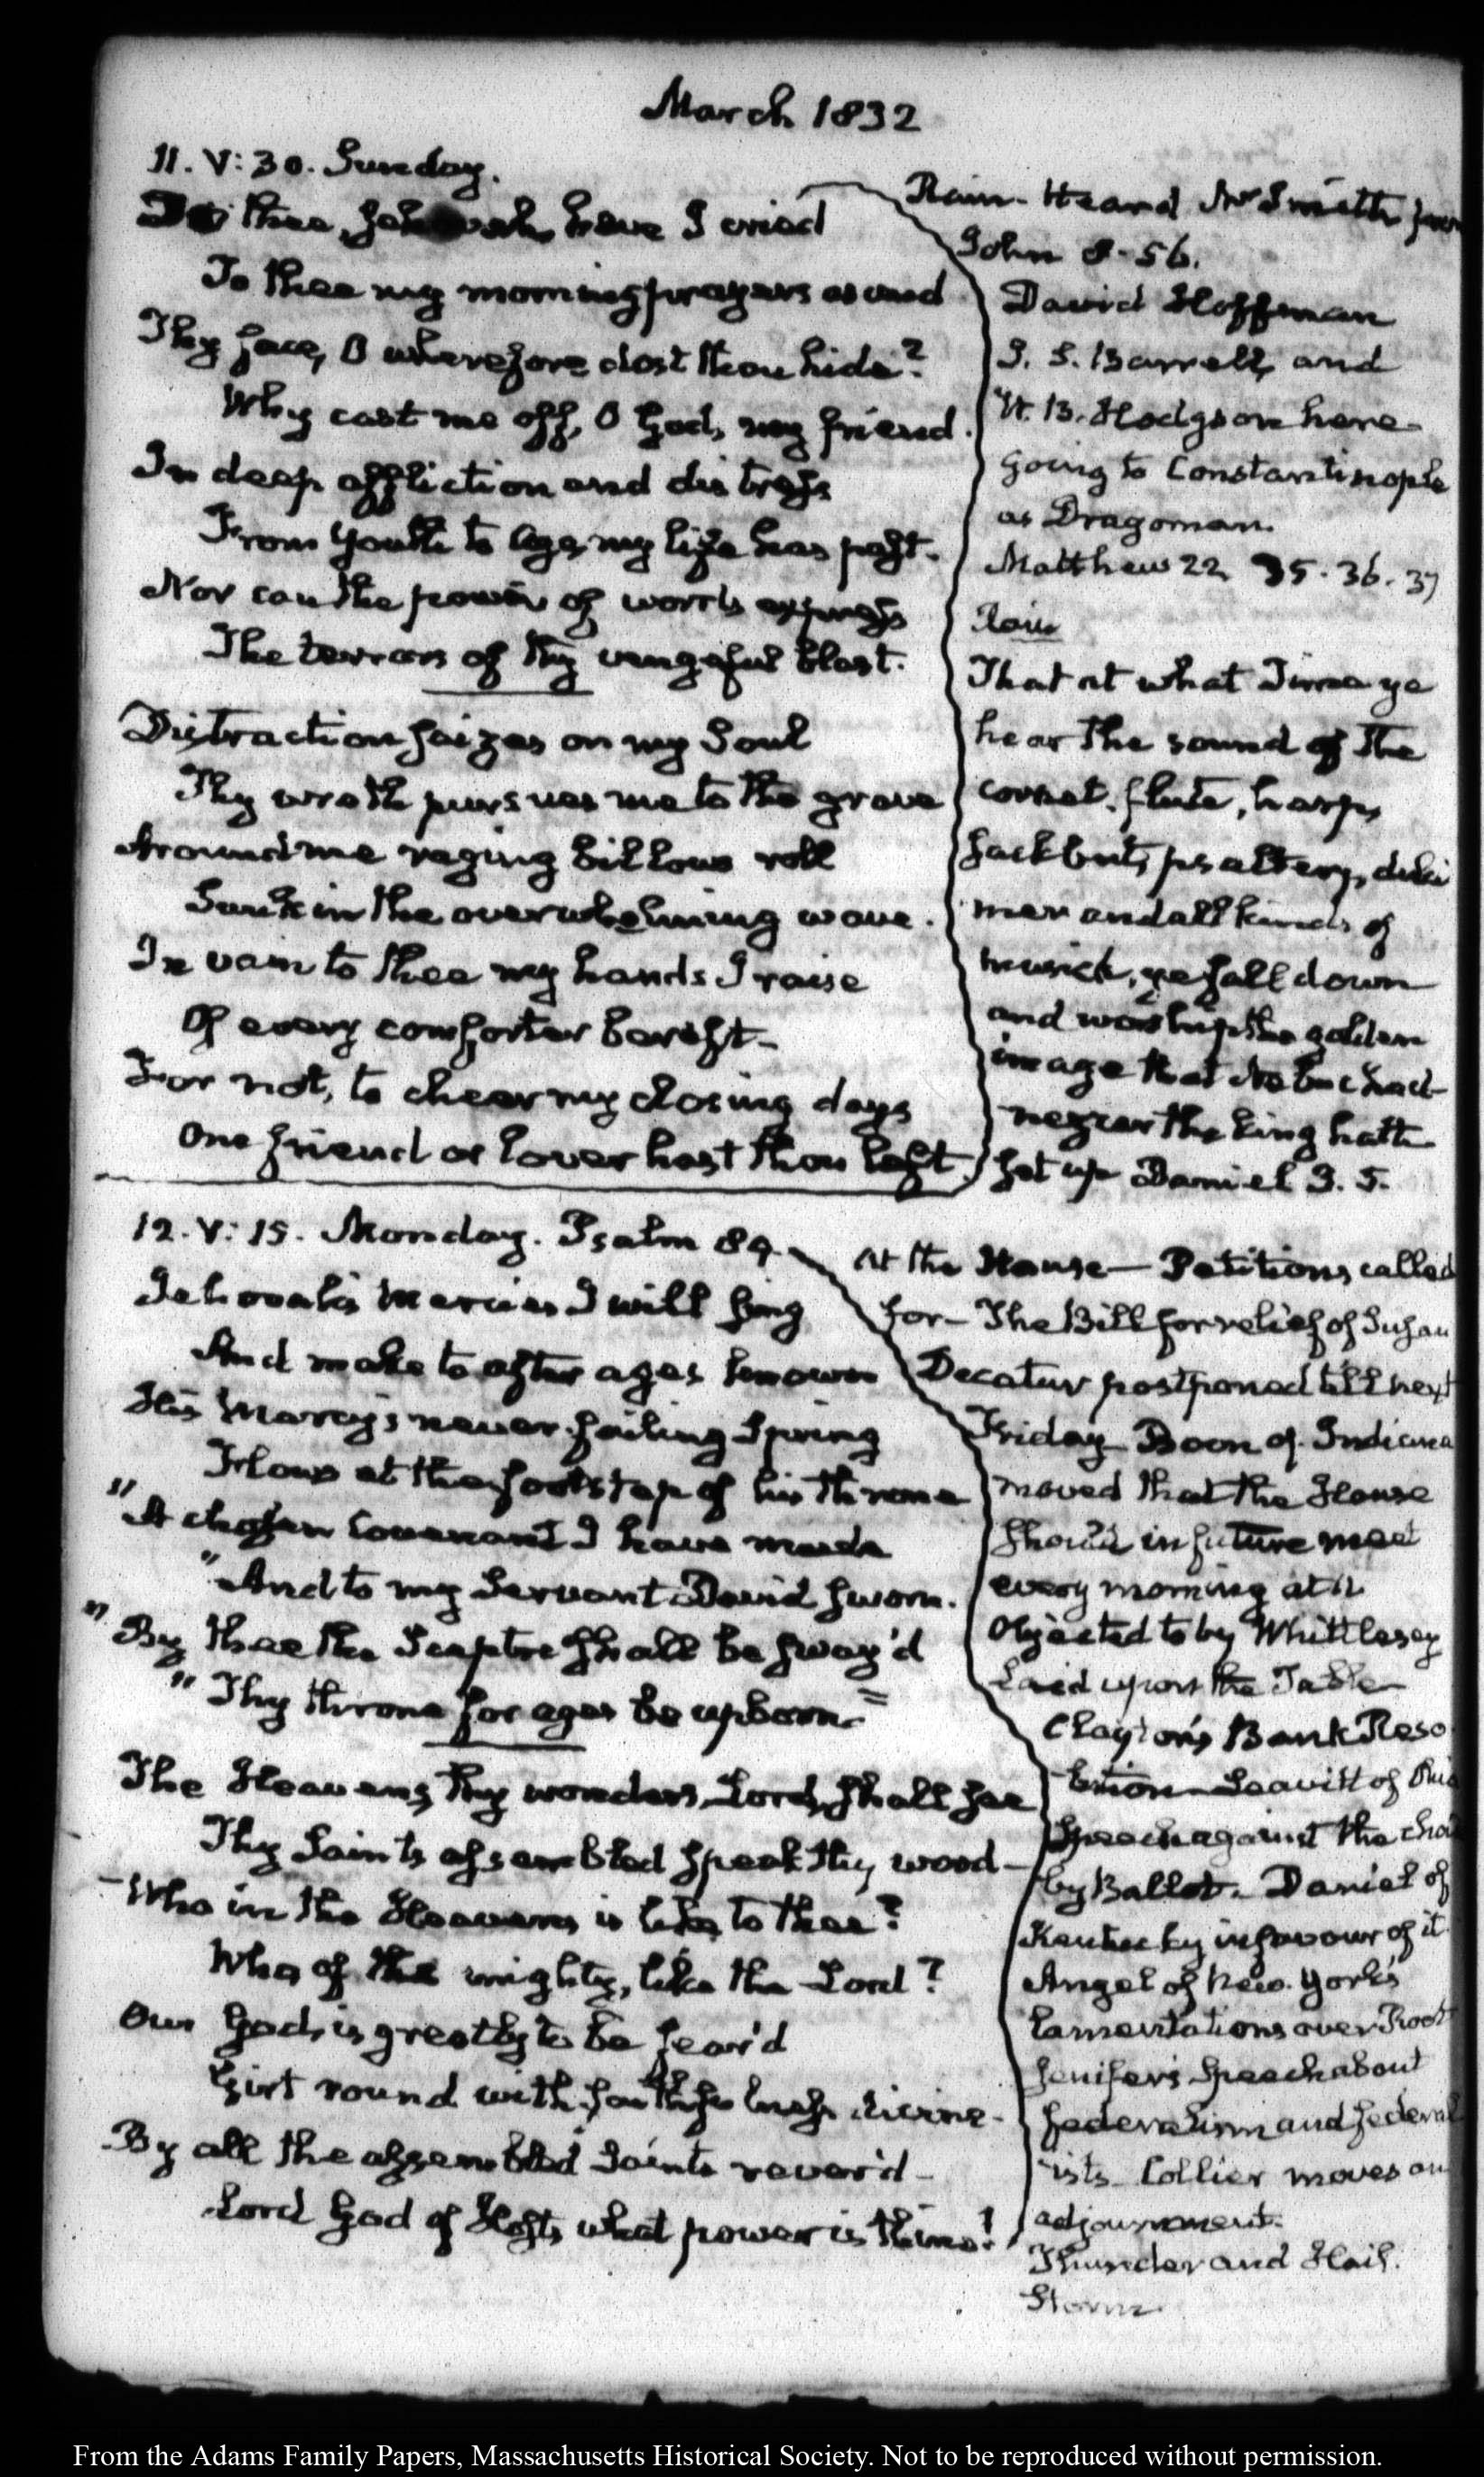 March 1832
11. V: 30. Sunday.
To thee, Jehovah, have I cried
To thee my morning prayers ascend
Thy face, O wherefore dost thou hide?
Why cast me off, O God, my friend.
In deep affliction and distress
From youth to age, my life has past.
Nor can the power of words express
The terrors of thy vengeful blast.
Distraction seizes on my Soul
Thy wrath pursues me to the grave
Around me raging billows roll
Sunk in the overwhelming wave.
In vain to thee my hands I raise
Of every comforter bereft-
For not, to cheer my closing days
One friend or lover hast thou left.
Rain- Heard Mr Smith from
John 8-56.
David Hoffman
J. S. Barrell, and
W. B. Hodgson here-
going to Constantinople
as Dragoman.
Matthew 22 35. 36. 37
Rain
That at what Time ye
hear the sound of the
cornet, flute, harp,
sackbut, psaltery, dulci
mer and all kinds of
musick, ye fall down
and worship the golden
image that Nebuchad-
nezzar the king hath
set up Daniel 3. 5.
12. V: 15. Monday. Psalm 89.
Jehovah's mercies I will sing
And make to after ages known
His Mercy's never-failing Spring
Flows at the footstep of his throne
"A chosen Covenant I have made
"And to my Servant David sworn.
"By thee the Sceptre shall be sway'd
"Thy throne for ages be upborn."
The Heavens, thy wonders, Lord, shall see
Thy Saints assembled speak thy word-
Who in the Heavens is like to thee?
Who of the mighty, like the Lord?
Our God, is greatly to be fear'd
Girt round with faithfulness divine-
By all the assembled Saints rever'd-
Lord God of Hosts, what power is thine!
At the House- Petitions called
for- The Bill for relief of Susan
Decatur postponed till next
Friday- Boon of Indiana
moved that the House
should in future meet
every morning at 11
Objected to by Whittlesey
Laid upon the Table-
Clayton's Bank Reso
lution- Leavitt of Ohio
Speech against the choice
by Ballot. Daniel of
Kentucky in favour of it
Angel of New-York's
lamentations over Root
Jenifer's Speech about
federalism and federal
ists- Collier moves an
adjournment.
Thunder and Hail.
Storm.
From the Adams Family Papers, Massachusetts Historical Society. Not to be reproduced without permission.